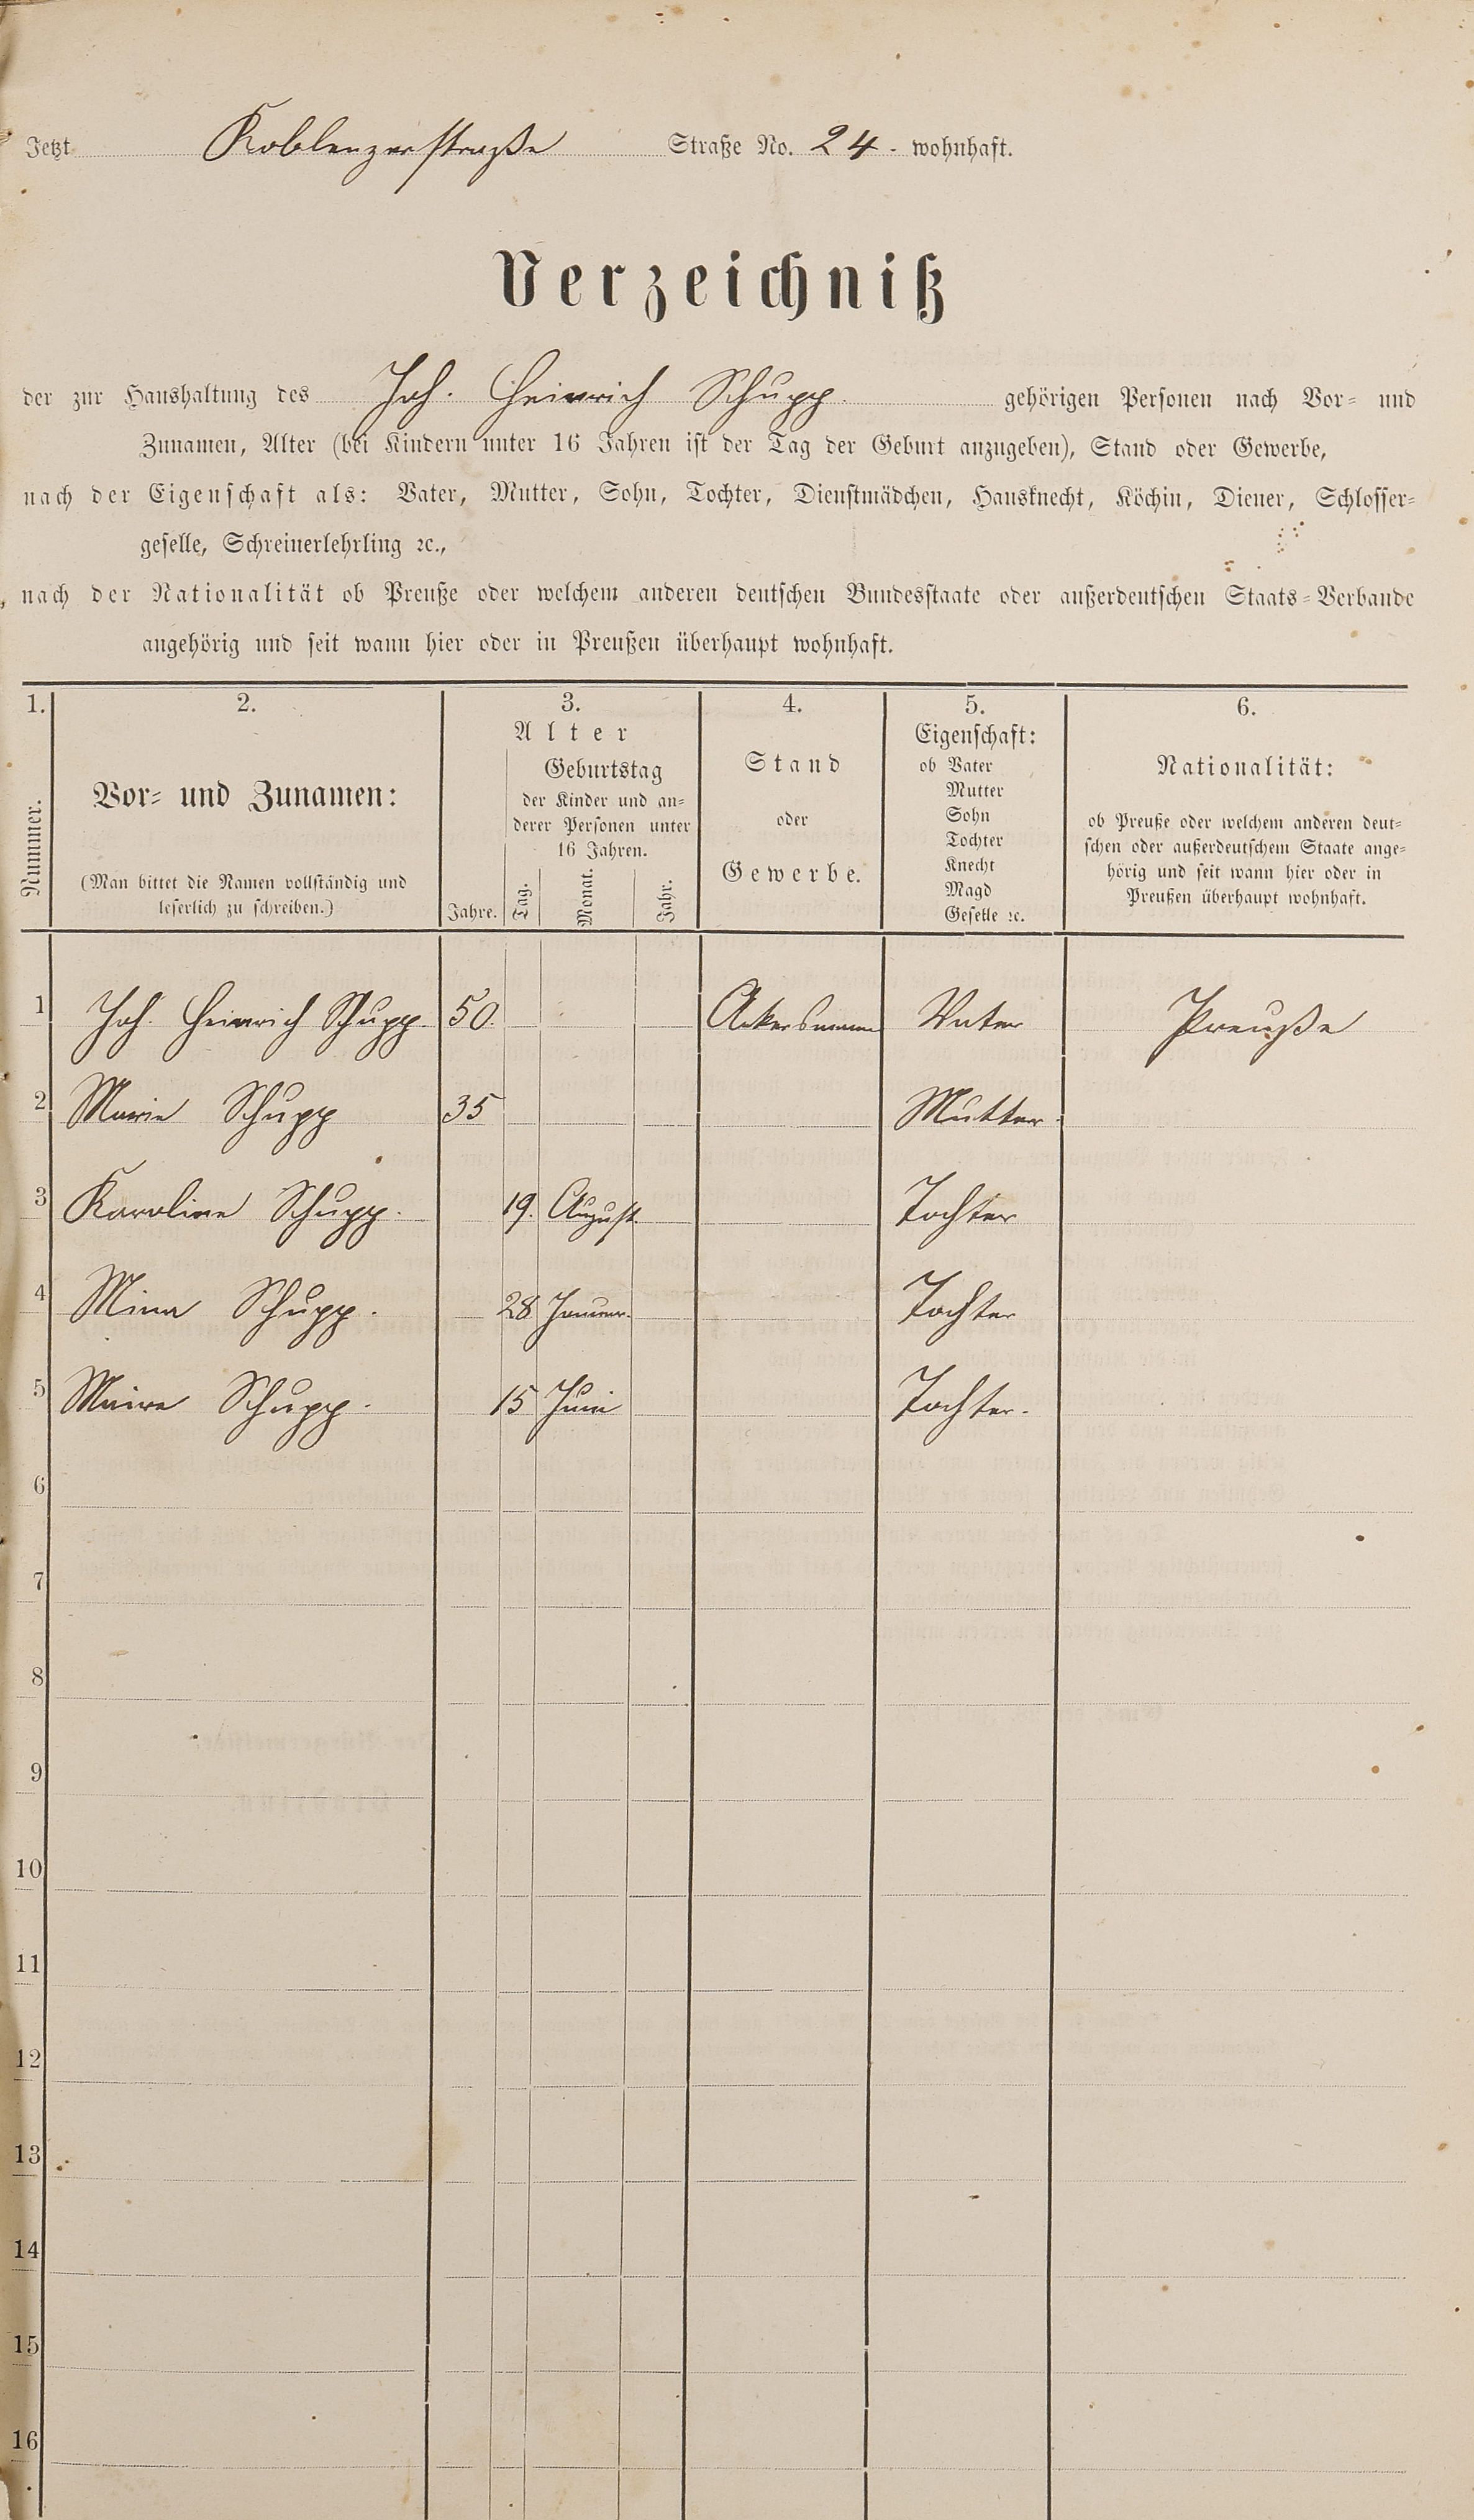 Jetzt Koblenzerstraße Straße No. 24. wohnhaft.
Verzeichniß
der zur Haushaltung des Joh. Heinrich Schupp. gehörigen Personen nach Vor- und
Zunamen, Alter (bei Kindern unter 16 Jahren ist der Tag der Geburt anzugeben), Stand oder Gewerbe,
nach der Eigenschaft als: Vater, Mutter, Sohn, Tochter, Dienstmädchen, Hausknecht, Köchin, Diener, Schlosser-
geselle, Schreinerlehrling ꝛc.,
nach der Nationalität ob Preuße oder welchem anderen deutschen Bundesstaate oder außerdeutschen Staats-Verbande
angehörig und seit wann hier oder in Preußen überhaupt wohnhaft.
1. 2. 3. 4. 5. 6.
Nummer.
Vor- und Zunamen:
(Man bittet die Namen vollständig und
leserlich zu schreiben.)
Alter
Geburtstag
der Kinder und an-
derer Personen unter
16 Jahren.
Jahre. Tag. Monat. Jahr.
Stand
oder
Gewerbe.
Eigenschaft:
ob Vater
Mutter
Sohn
Tochter
Knecht
Magd
Geselle ꝛc.
Nationalität:
ob Preuße oder welchem anderen deut-
schen oder außerdeutschem Staate ange-
hörig und seit wann hier oder in
Preußen überhaupt wohnhaft.
1 Joh. Heinrich Schupp. 50. Ackersmann Vater Preuße
2 Marie Schupp 35 Mutter.
3 Karoline Schupp. 19. August. Tochter
4 Mina Schupp. 28 Januar. Tochter
5 Schupp. 15 Juni Tochter.
6
7
8
9
10
11
12
13
14
15
16